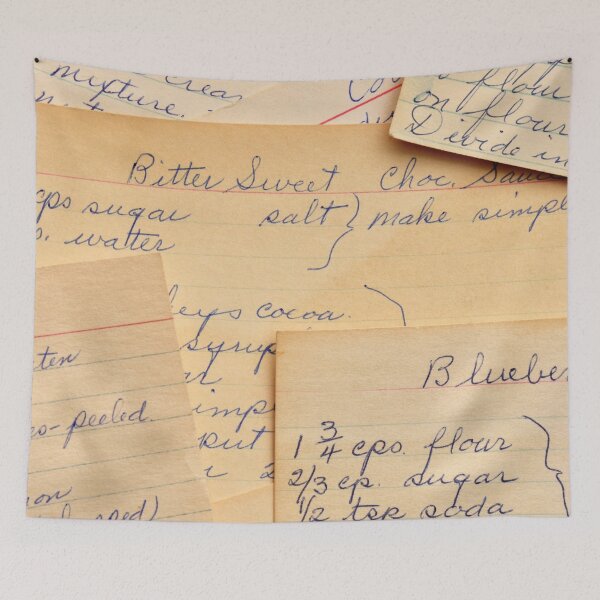 mixture.
flour
on flour
Divide in
Bitter Sweet Choc. Sauc
cps sugar salt } make simpl
. watter
eys cocoa.
syrup
imp
put
2
ten
-peeled.
on
Blueber
1 3/4 cps. flour
2/3 cp. sugar
1/2 tsp soda